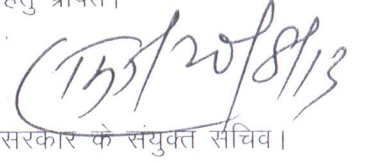 हेतु प्रेषित।
20/8/13
सरकार के संयुक्त सचिव।